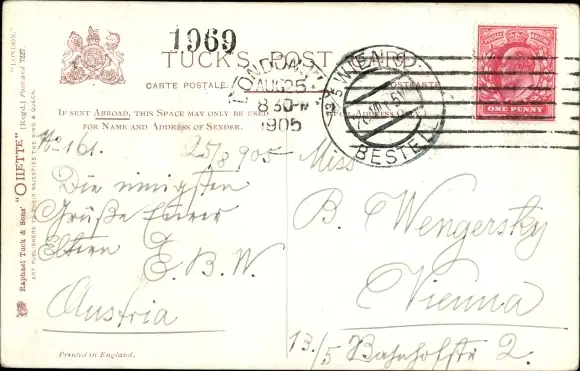 1969
TUCK'S POST CARD
CARTE POSTALE
POSTKARTE
IF SENT ABROAD, THIS SPACE MAY ONLY BE USED
FOR NAME AND ADDRESS OF SENDER.
LONDON
AUG 25
8 30
1905
WIEN
BESTELL
ONE PENNY
No 161.
25/8 905
Die innigsten
Grüße Eurer
Eltern E. B. W.
Austria
Miss
B. Wengersky
Vienna
13/5 Bahnhofstr 2.
Printed in England.
"LONDON."
Raphael Tuck & Sons' "OILETTE" [Regd.] Postcard 7227.
ART PUBLISHERS TO THEIR MAJESTIES THE KING & QUEEN.